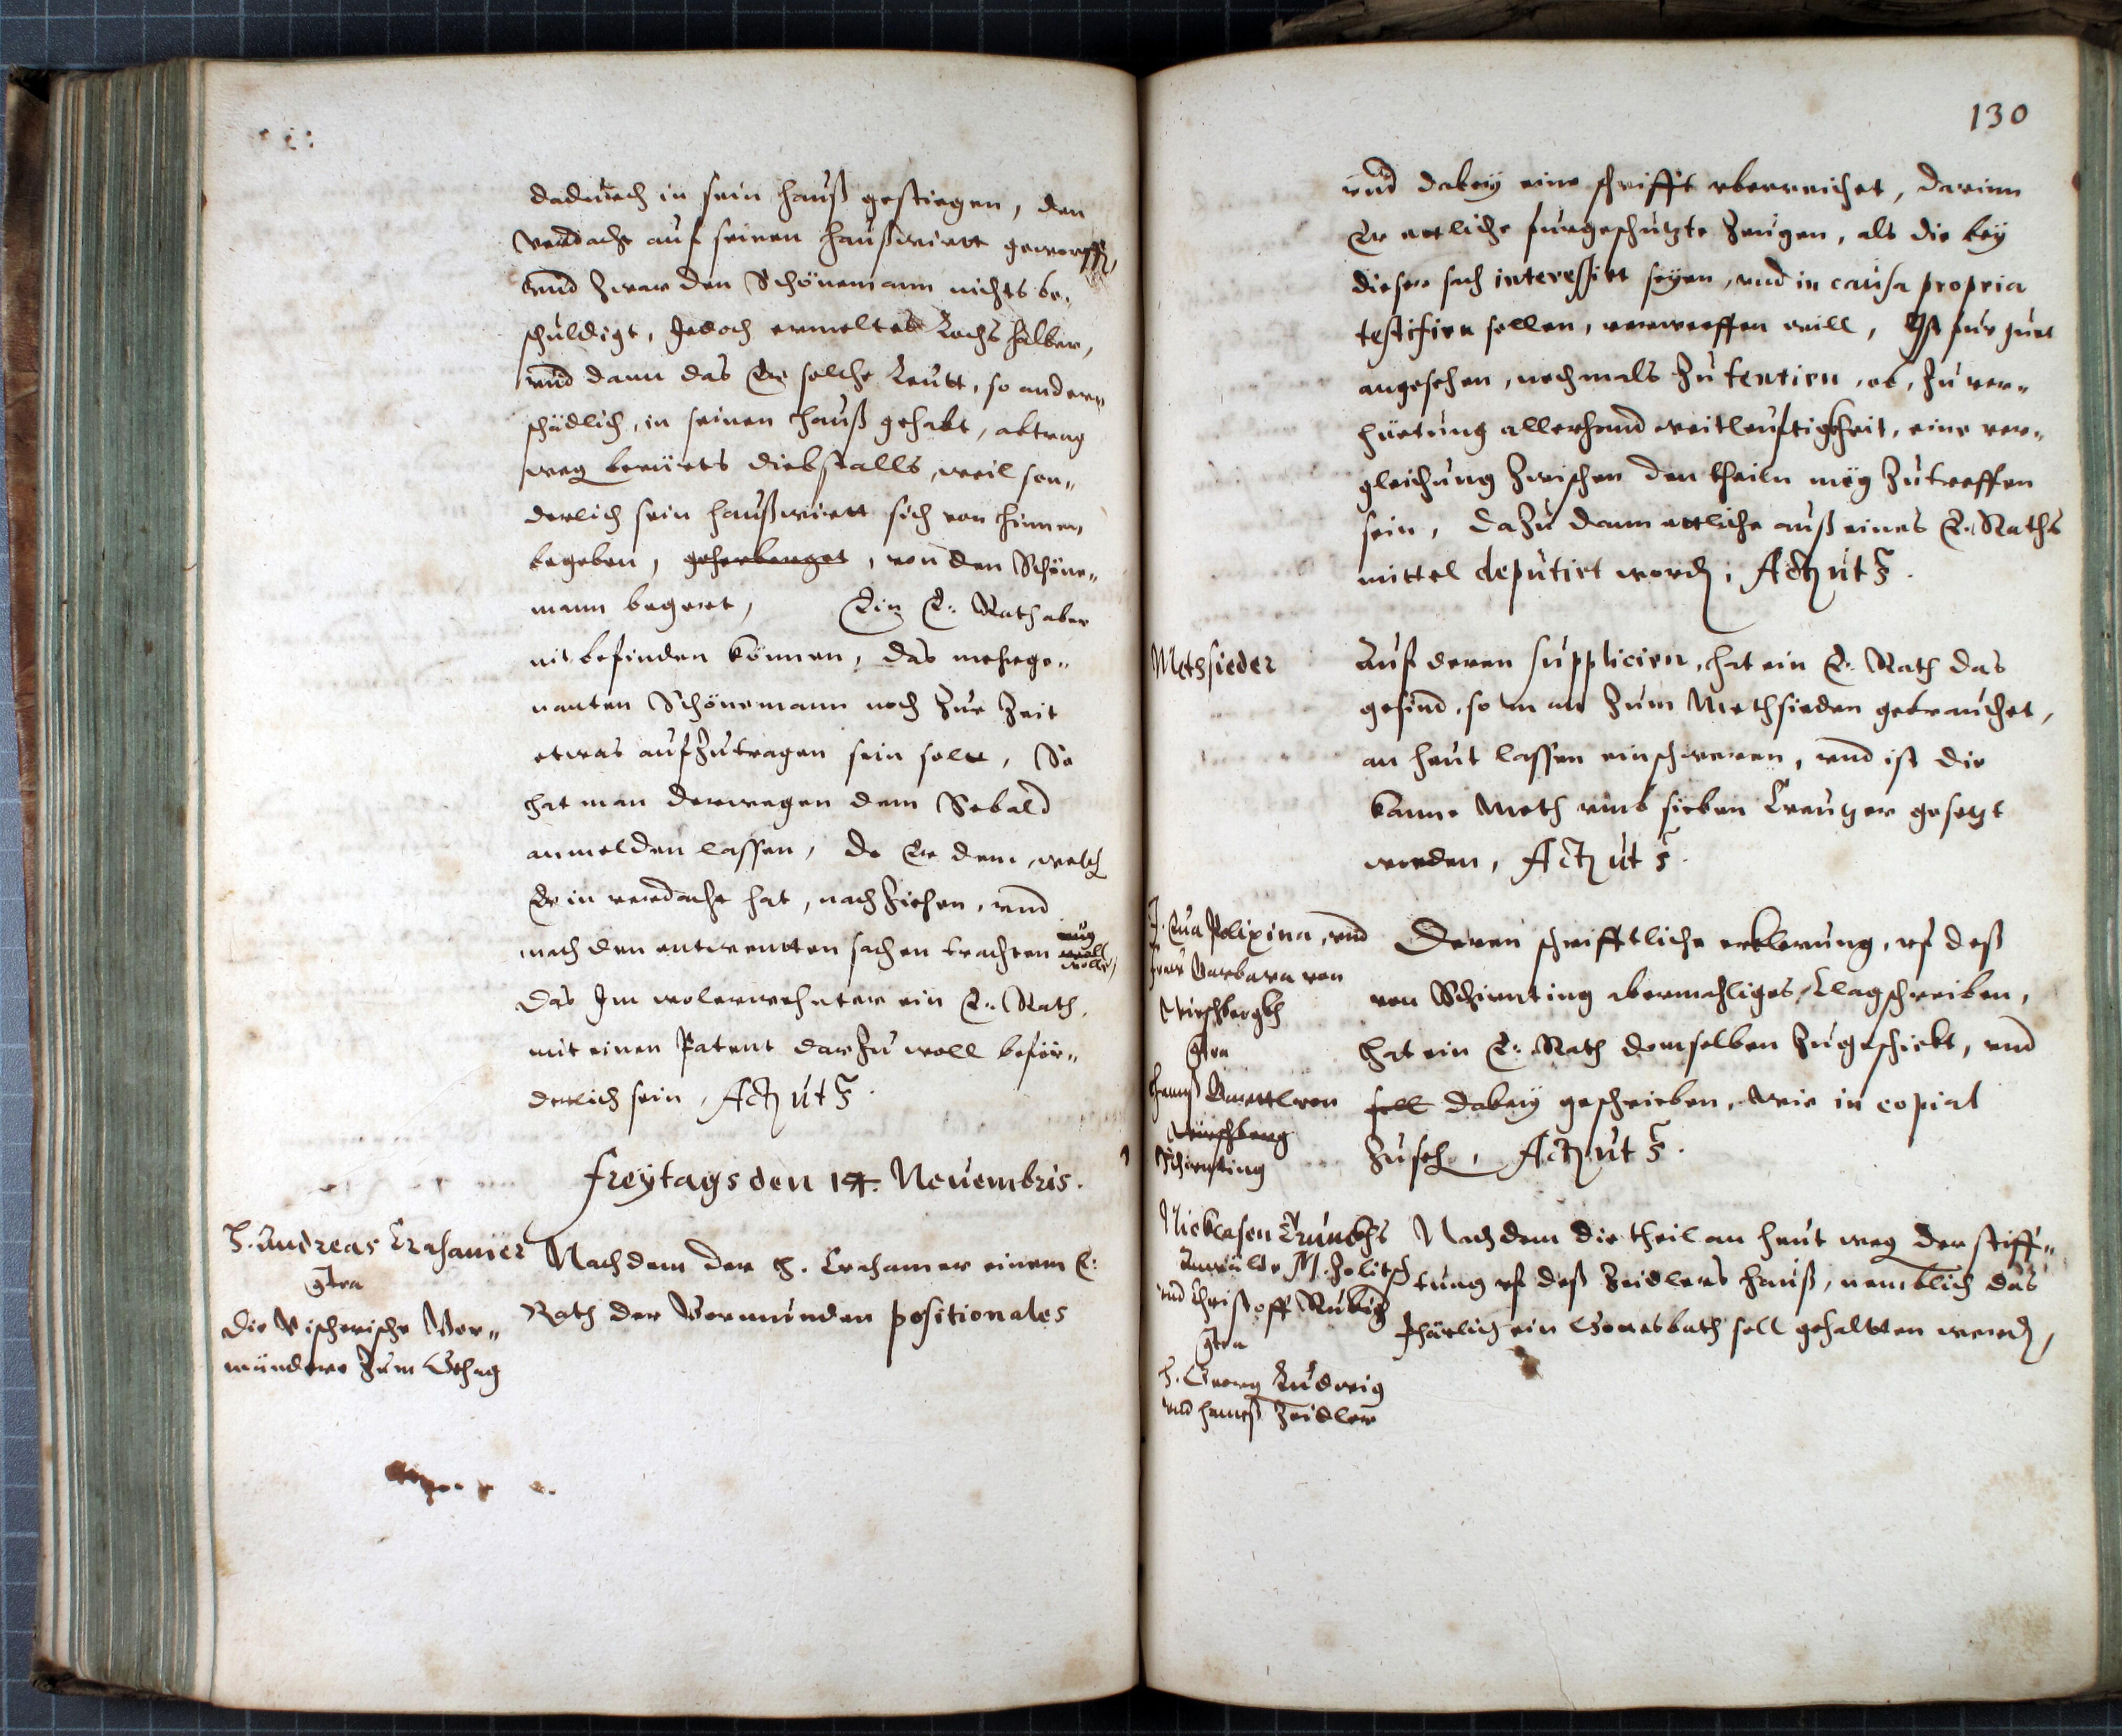 dadurch in sein hauß gestiegen, den
verdacht auf seinen haußwirtt geworffen,
vnnd zwar den Schönemann nichts be„
schuldigt, Jedoch ermeltes Lochs halber,
vnnd dann das Er solche Leutt, so andern
schädlich, in seinen hauß gehabt, abtrag
weg. berürts diebstalls, weil son„
derlich sein haußwirtt sich von hinnen
begeben, geherberget, von den Schöne„
mann begert, Ein E. Rath aber
nit befinden können, das mehrge„
nanten Schönemann noch zur Zeit
etwas aufzutragen sein solt, So
hat man derwegen dem Sebald
anmelden lassen, do Er dem, welch
Er in verdacht hat, nachziehen, vnd
nach den entwentten sachen trachten woll,
das Jm wolerwehnter ein E. Rath,
mit einen Patent darzu woll beför„
derlich sein, Act ut s.
Freytags den 14. Nouembris.
H. Andreas Crahamer
gtra
die Vischerische Vor„
mündere zum
Nachdem der H. Crahamer einem E.
Rath der Vormunden positionales
130
vnd dabey eine schrifft vberreichet, darinn
Er ettliche furgeschutzte Zeugen, als die bey
dieser sach interessirt seyen, vnd in causa propria
testifirn sollen, verwerffen will, Ist fur gut
angesehen, nochmals zu tentirn, ob, zu ver„
hüetung allerhand weitleuftigkheit, eine ver„
gleichung zwischen den theiln mög zutreffen
sein, dazu dann ettliche auß eines E. Raths
mittel deputirt word, Act ut s.
Metsieder
Auf deren supplicirn, hat ein E. Rath das
gesind, so man zum Methsieden gebrauchet,
an heut lassen einschweren, vnd ist die
kanne Meth vmb sieben Creutzer gesetzt
worden, Act ut s.
F. Eua Polixina, vnd
frau Barbara von
Wirschbergkh
gtra
Hanß von
Wirschberg
Schirnting
Deren schrifftliche erklerung, vf deß
von Schirnting abermahliges Clagschreiben,
hat ein E. Rath demselben zugeschickt, vnd
soll dabey geschrieben, wie in copial
zuseh, Act ut s.
Nicklasen
Anwälde M.
vnd Christoff
gtra
H. Georg Ludwig
vnd Hanß Zeidler
Nachdem die theil an heut weg. der stiff„
tung vf deß Zeidlers hauß, nemblich das
Jhärlich ein soll gehaltten werd,